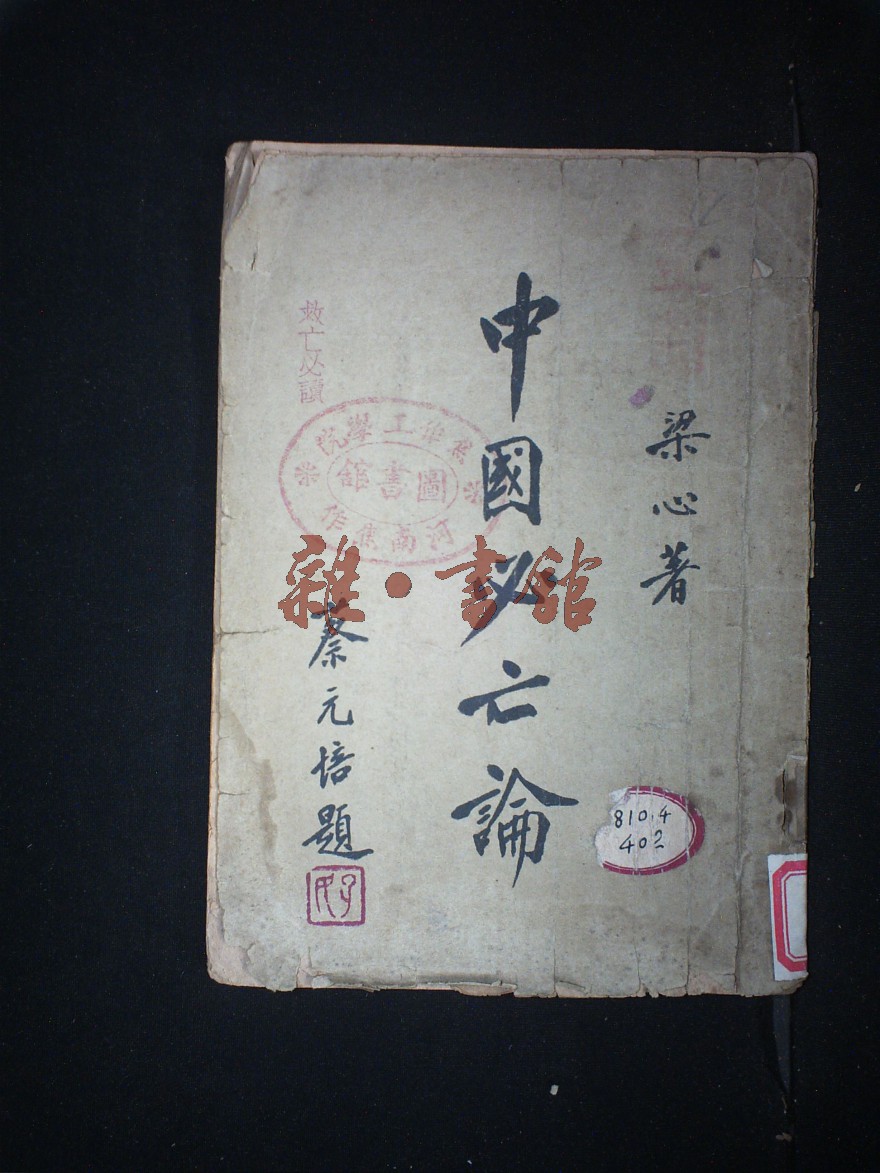 梁心著
中國必亡論
救亡必讀
蔡元培題
孑民
焦作工學院
圖書館
河南焦作
雜·書館
810.4
402